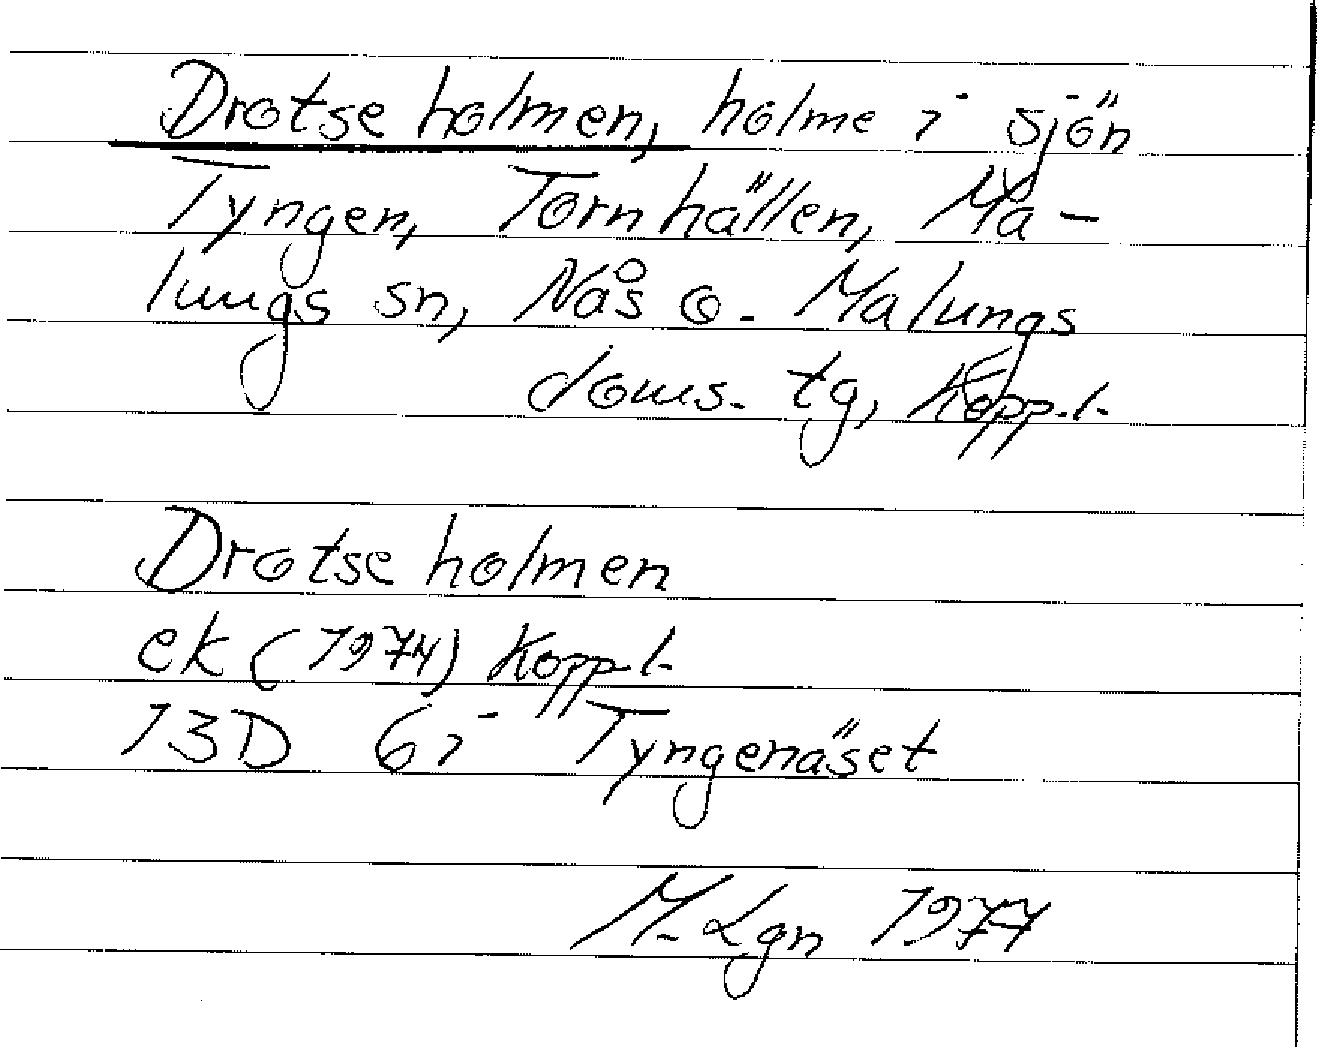 Drotseholmen, holme i sjön
Tyngen, Törnhällen, Ma-
lungs sn, Nås o. Malungs
doms. tg, Kopp.l.
Drotseholmen
ek (1974) Kopp.l.
13D 6i Tyngenäset
M. Lgn 1977